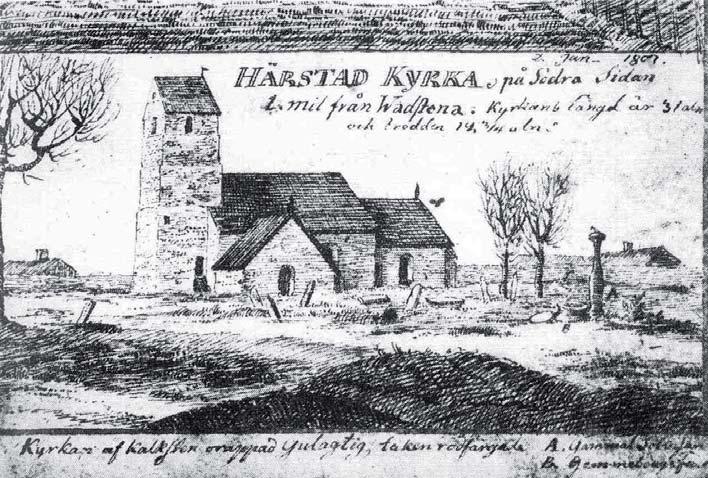 2. Jan. 1807.
HÄRSTAD KYRKA, på Södra Sidan
1. mil från Wadstena. Kyrkans längd är 31 aln
och bredden 14 3/4 aln.
Kyrkan af kalksten orappad Gulagtig, taken rödfärgade A. Gammal
B.